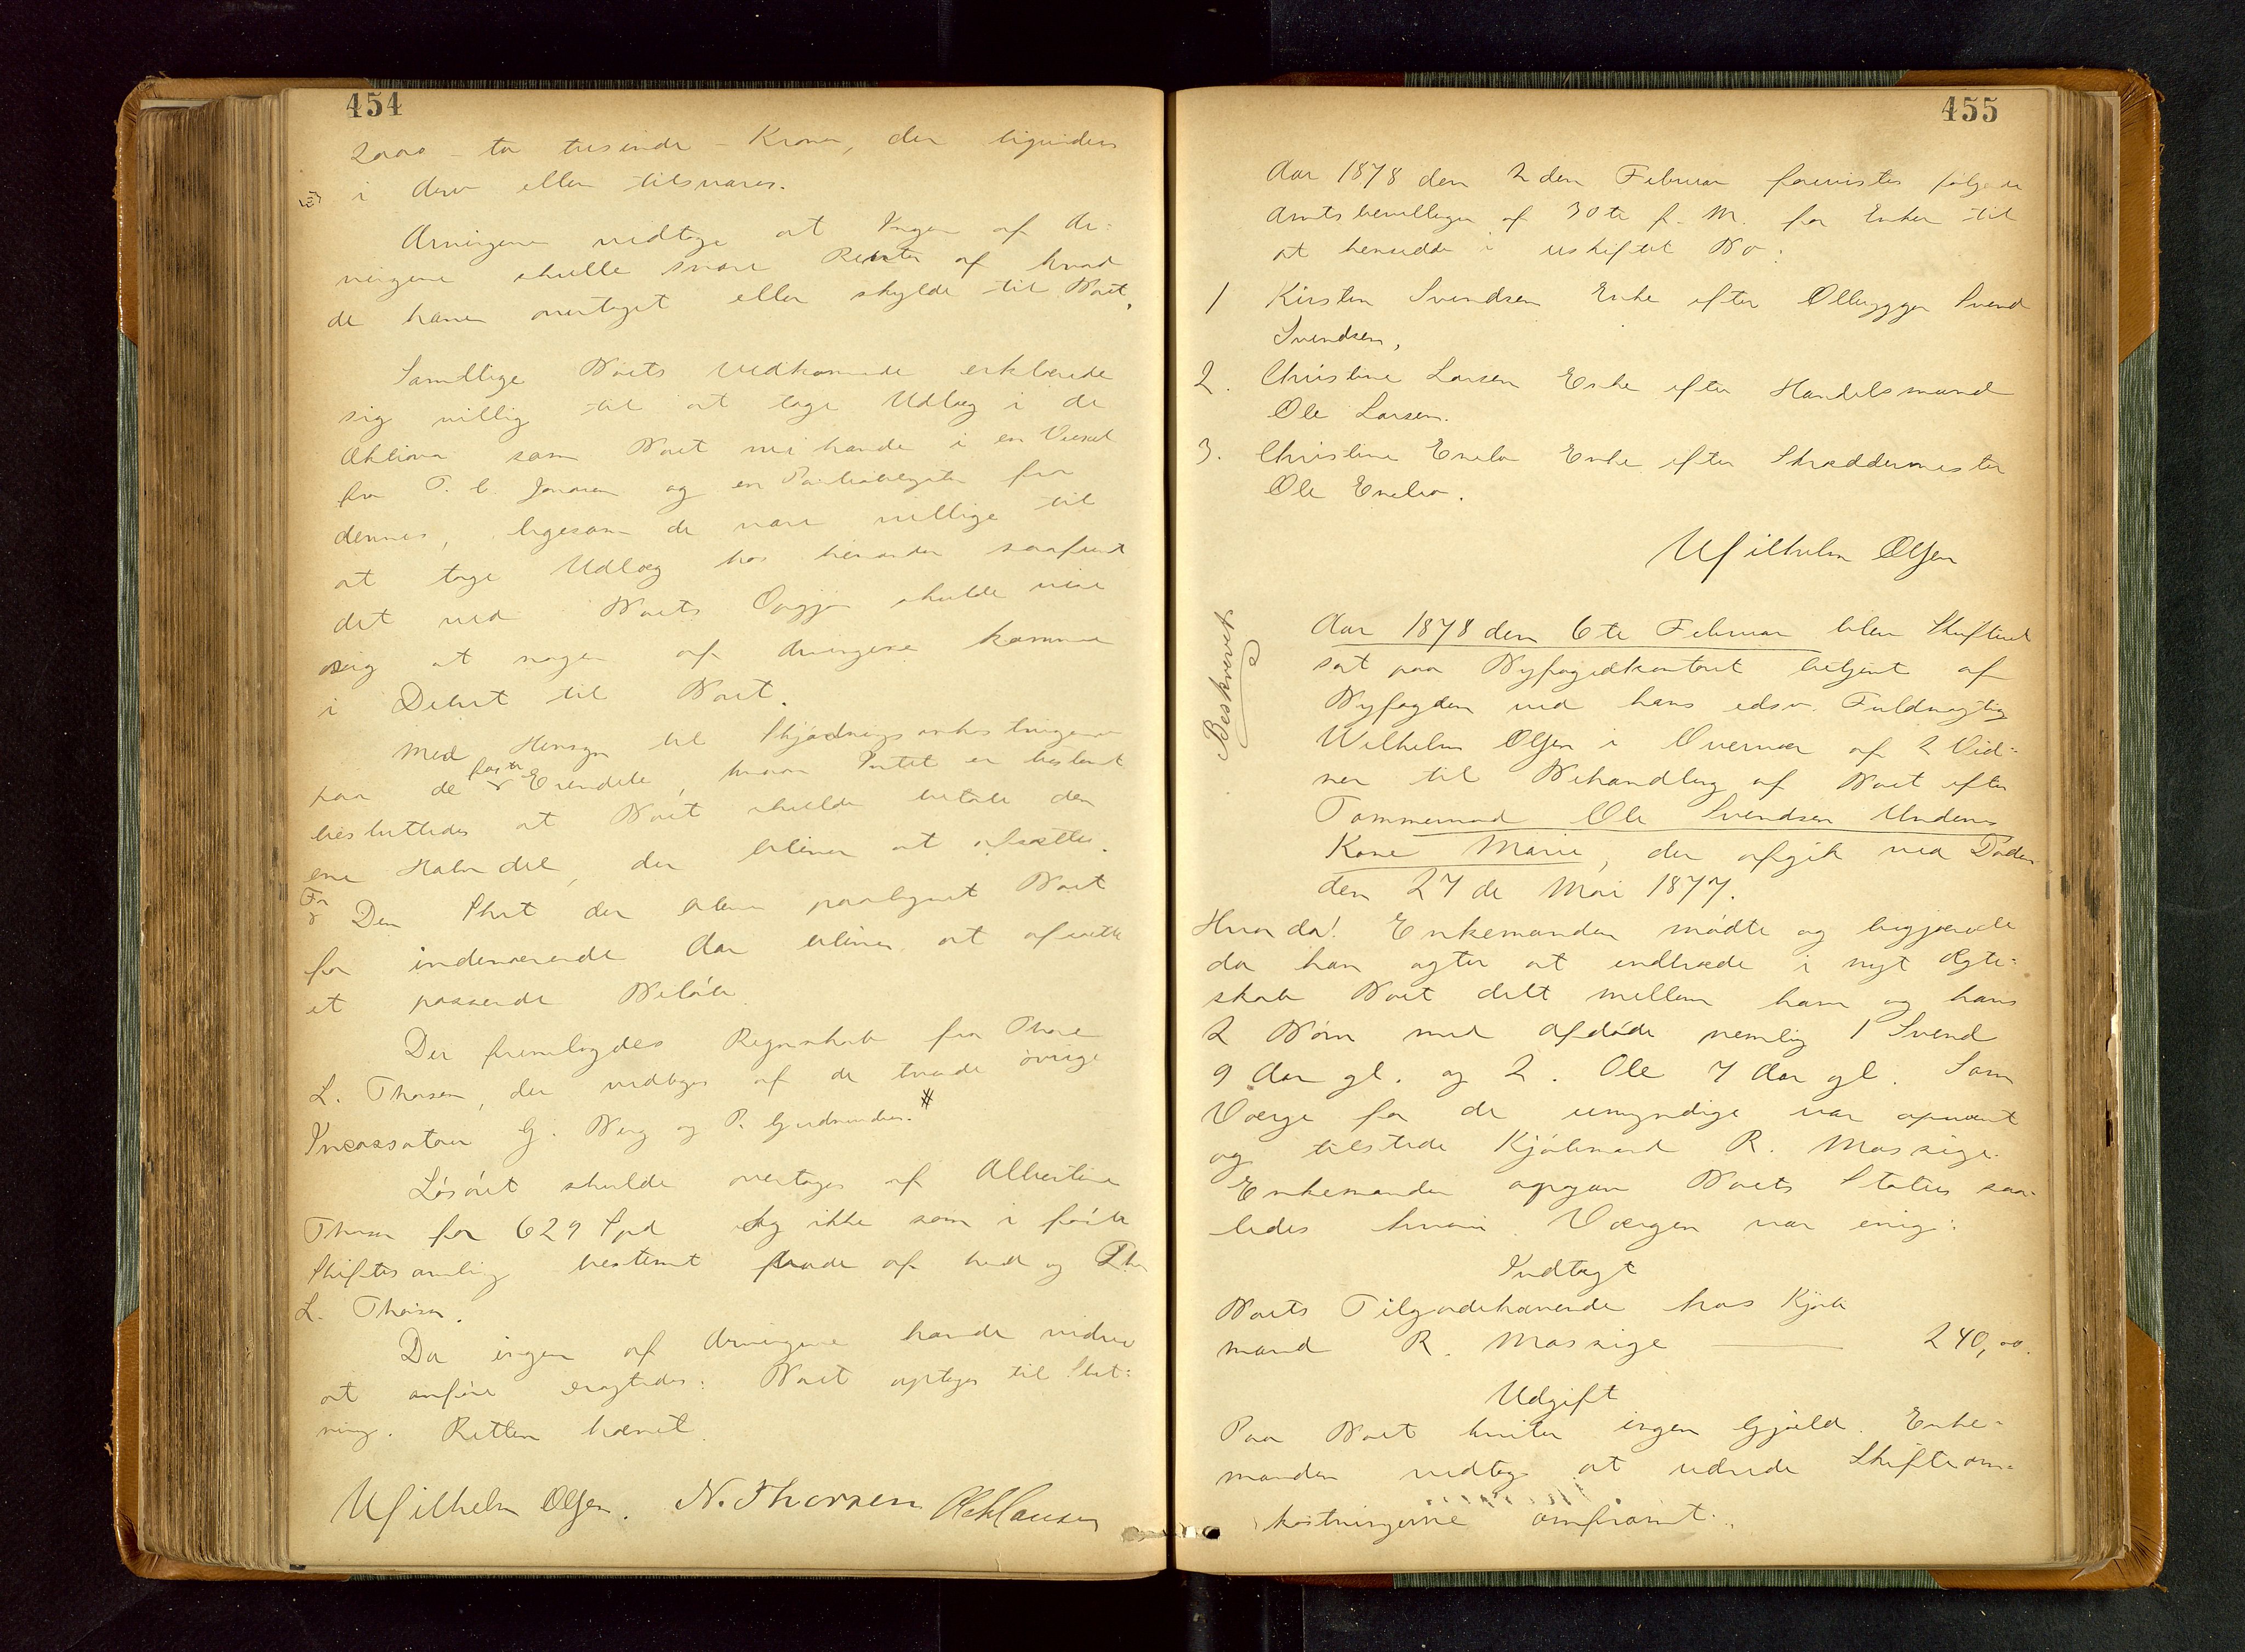 454
2000 – to tusinde – Kroner, der liquideres
i Arv eller tilsvares.
Arvingerne vedtoge at Ingen af Ar-
vingerne skulle svare Renter af hvad
de haver overtaget eller skylde til Boet.
Samtlige Boets Vedkommende erklærede
sig villig til at tage Udlæg i de
Aktiver som Boet nu havde i en Vexel
fra T. C. Jonasen og en fra
dennes, ligesom de vare villige til
at tage Udlæg hos hinanden saafremt
det ved Boets Opgjør skulde vise
sig at nogen af Arvingerne komme
i Debet til Boet.
Med Hensyn til Skjødningsomkostningerne
paa de faste Eiendele, hvorom Intet er bestemt
besluttedes at Boet skulde betale den
ene Halvdel, der bliver at afsættes.
For Den Skat der bliver paalignet Boet
for indeværende Aar bliver at afsætte
et passende Beløb.
Der fremlagdes Regnskab fra Thore
L. Thorsen, der vedtoges af de tvende øvrige
Incassatorer G. Berg og P. Gudmundsen. #
Løsøret skulde overtages af Albertine
Thorsen for 629 Spd og ikke som i første
Skiftesamling bestemt baade af hende og Thor
L. Thorsen.
Da ingen af Arvingerne havde videre
at anføre eragtedes: Boet optages til Slut-
ning. Retten hævet.
Wilhelm Olsen. N. Thorsen
455
Aar 1878 den 2den Februar forevistes følgende
Amtsbevillinger af 30te f. M. for Enker til
at hensidde i uskiftet Bo:
1 Kirsten Svendsen Enke efter Ølbrygger Svend
Svendsen,
2. Christine Larsen Enke efter Handelsmand
Ole Larsen.
3. Christine Enebo Enke efter Skræddermester
Ole Enebo.
Wilhelm Olsen
Beskrevet
Aar 1878 den 6te Februar blev Skifteret
sat paa Byfogedkontoret betjent af
Byfogden ved hans edsv. Fuldmægtig
Wilhelm Olsen i Overvær af 2 Vid-
ner til Behandling af Boet efter
Tømmermand Ole Svendsen Undenes
Kone Marie, der afgik ved Døden
den 27de Mai 1877.
Hvorda! Enkemanden mødte og begjærede
da han agter at indtræde i nyt Ægte-
skab Boet delt mellem ham og hans
2 Børn med afdøde nemlig 1 Svend
9 Aar gl. og 2. Ole 7 Aar gl. Som
Værge for de umyndige var opnævnt
og tilstede Kjøbmand R. Massige.
Enkemanden opgav Boets Status saa-
ledes hvori Værgen var enig:
Indtægt
Boets Tilgodehavende hos Kjøb
mand R. Massige — 240,00.
Udgift
Paa Boet hviler ingen Gjæld. Enke-
manden vedtog at udrede Skifteom-
kostningerne